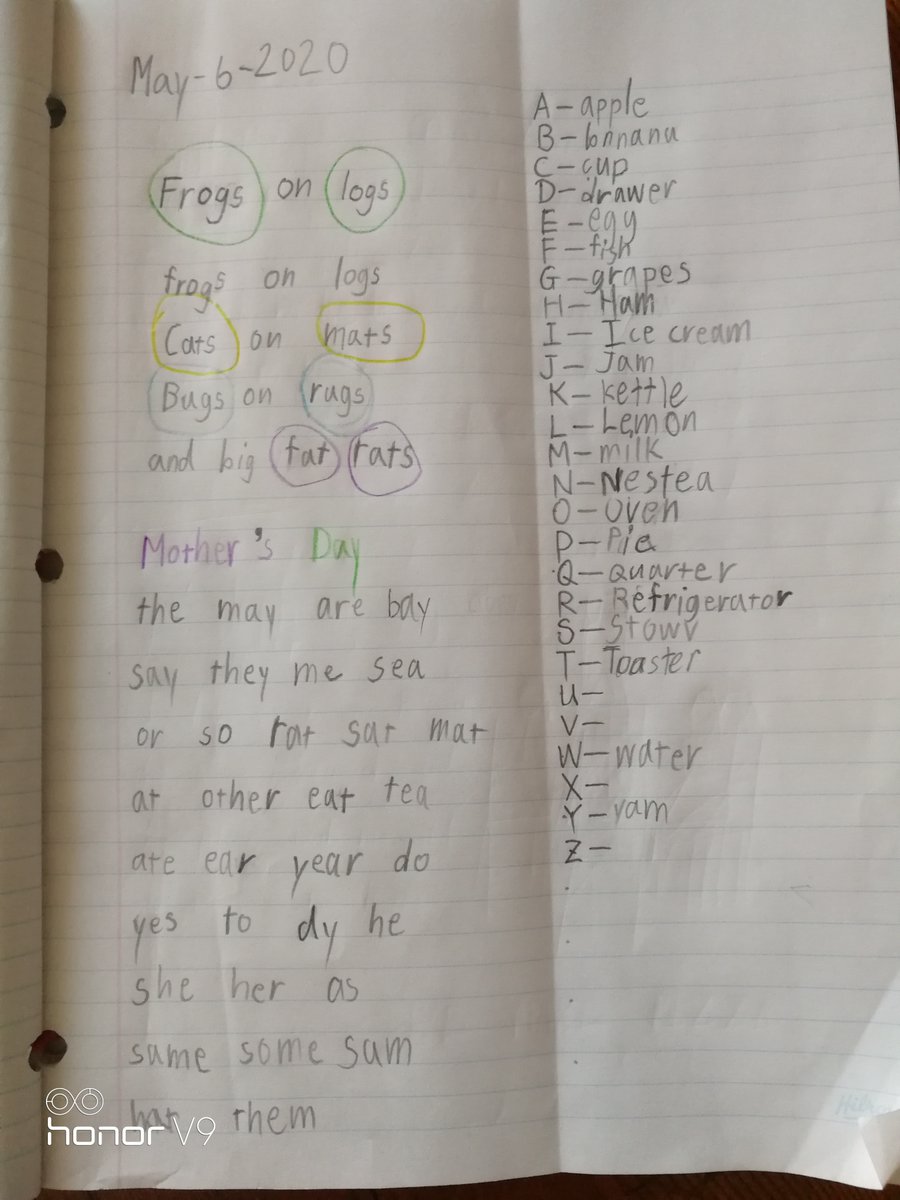 May-6-2020
Frogs on logs
frogs on logs
Cats on mats
Bugs on rugs
and big fat rats
Mother's Day
the may are bay
say they me sea
or so rat sat mat
at other eat tea
ate ear year do
yes to dy he
she her as
same some sam
hat them
A-apple
B-bannana
C-cup
D-drawer
E-egg
F-fish
G-grapes
H-Ham
I-Ice cream
J-Jam
K-kettle
L-Lemon
M-milk
N-Nestea
O-oven
P-Pie
Q-quarter
R-Refrigerator
S-Stowv
T-Toaster
U-
V-
W-water
X-
Y-yam
Z-
honor V9